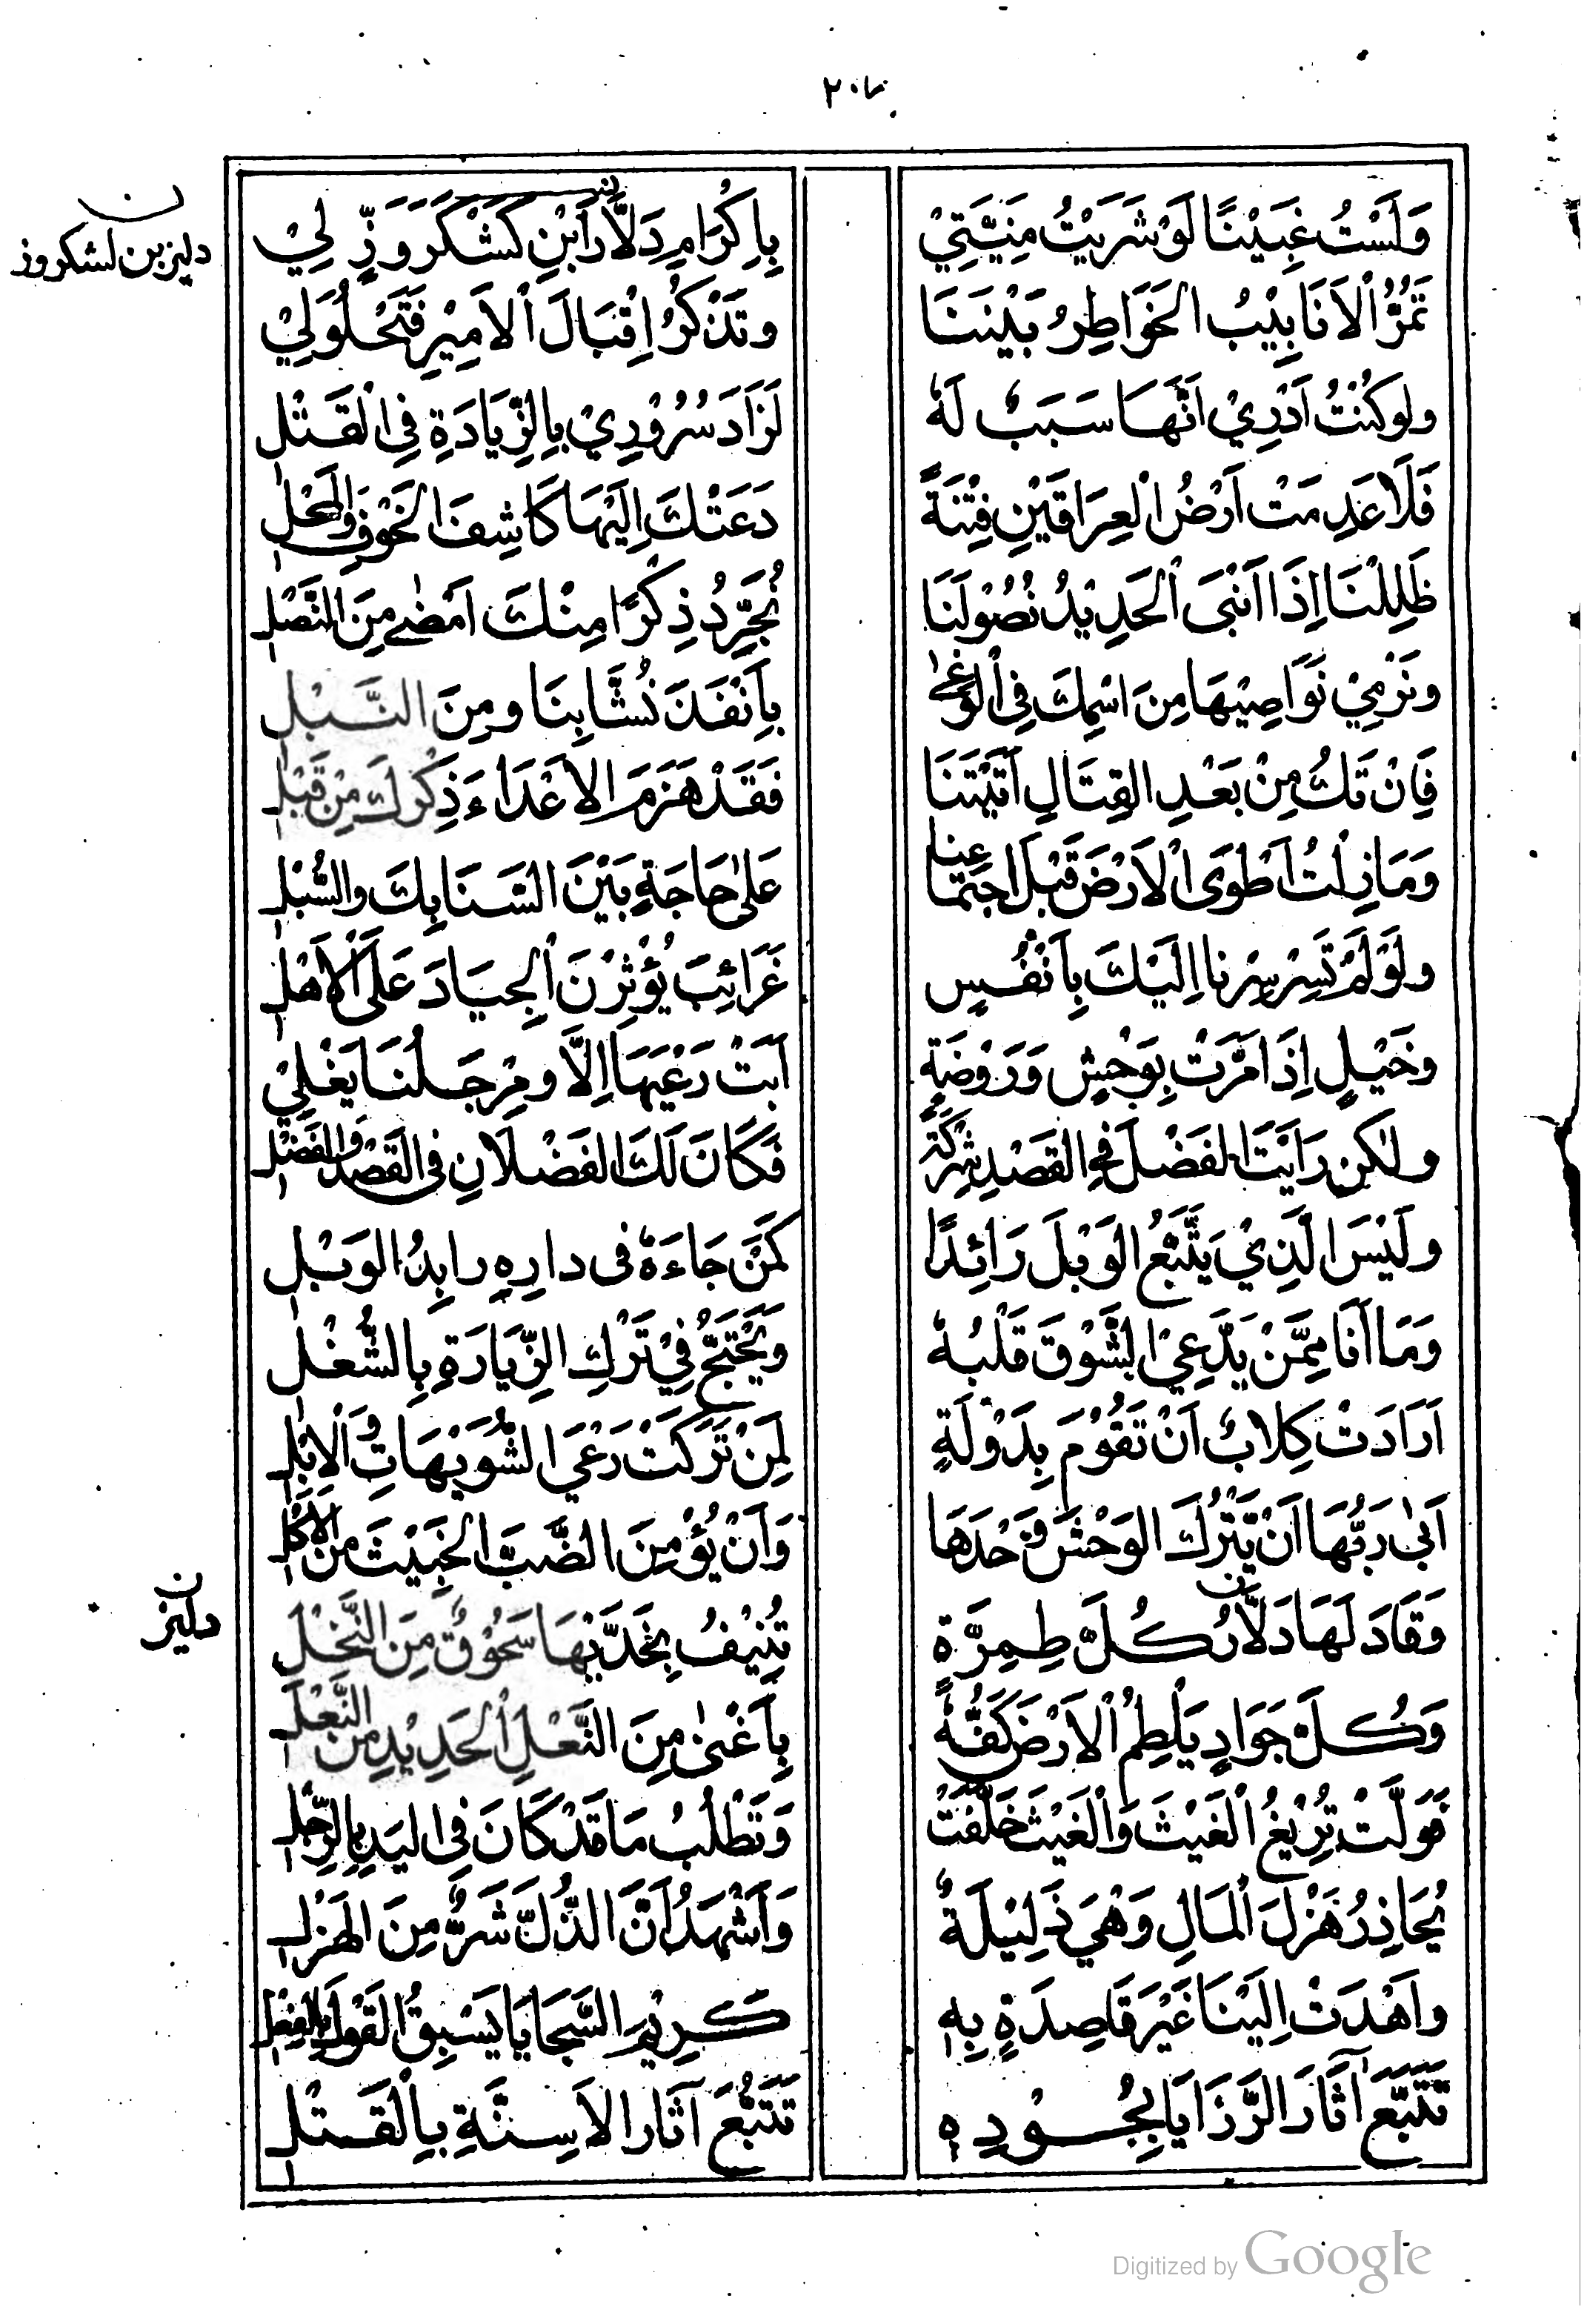 ٢٠٨
وَلَسْتُ غَبِيْنًا لَوْ شَرَيْتُ مَنِيَّتِيْ بِاِكْرَامِ دَلَّارَ ابْنِ كَشْكَرَوَزٍّ لِيْ
دليز بن لشكروز
تَمُرُّ اْلاَنَابِيْبُ الخَوَاطِرُ بَيْنَنَا وتَذْكُرُ اِقْبَالَ اْلاَمِيْرِ فَتَحْلُوَلِيْ
ولو كُنْتُ اَدْرِيْ اَنَّهَا سَبَبٌ لَهٗ لَزَادَ سُرُوْرِيْ بِالزِّيَادَةِ فِي اْلقَتْلِ
فَلَا عَدِمَتْ اَرْضُ اْلعِرَاقَيْنِ فِتْنَةً دَعَتْكَ اِلَيْهَا كَاشِفَ الخَوْفِ والمَحْلِ
ظَلِلْنَا اِذَا اَنْبَى اْلحَدِيْدُ نُصُوْلَنَا نُجَرِّدُ ذِكْرًا مِنْكَ اَمْضٰى مِنَ النَّصْلِ
ونَرْمِيْ نَوَاصِيْهَا مِنَ اسْمِكَ فِي اْلوَغٰى بِاَنْفَذَ نُشَّابِنَا ومِنَ النَّبْلِ
فَاِنْ تَكُ مِنْ بَعْدِ القِتَالِ اَتَيْتَنَا فَقَدْ هَزَمَ الاَعْدَاءَ ذِكْرُكَ مِنْ قَبْلِ
وَمَا زِلْتُ اَطْوَى اْلاَرْضَ قَبْلَ اجتماعنا عَلٰى حَاجَةٍ بَيْنَ السَّنَابِكَ والسُّبْلِ
ولَوْ لَمْ تَسِرْ سِرْنا اِلَيْكَ بِاَنْفُسٍ غَرَائِبَ يُؤْثِرْنَ اْلجِيَادَ عَلَى اْلاَهْلِ
وخَيْلٍ اِذَا مَرَّتْ بِوَحْشٍ وَرَوْضَةٍ اَبَتْ رَعْيَهَا اِلَّا ومِرْجَلُنَا يَغْلِيْ
ولٰكن رَاَيْتَ الفَضْلَ فى القَصْدِ شِرْكَةً فَكَانَ لَكَ الفَضْلَانِ فى القَصْدِ والفَضْلِ
ولَيْسَ الَّذِيْ يَتَّبَّعُ الوَبْلَ رَائِدًا كَمَنْ جَاءَهٗ فى دارِهِ رايِدُ الوَبْلِ
وَمَا اَنَا مِمَّنْ يَدَّعِيْ الشَّوْقَ قَلْبُهٗ وَيَحْتَجُّ فِيْ تَرْكِ الزِّيَارَةِ بِالشُّغْلِ
اَرَادَتْ كِلابٌ اَنْ تَقُوْمَ بِدَوْلَةٍ لِمَنْ تَرَكَتْ رَعْيَ الشُّوَيْهَاتِ وَاْلاِبْلِ
اَبٰى رَبُّهَا اَنْ يَتْرُكَ الوَحْشَ وَحْدَهَا وَاَنْ يُؤْمِنَ الضَّبَّ الخَبِيْثَ مِنَ الاَكْلِ
وَقَادَ لَهَا دَلَّارُ كُلَّ طِمِرَّةٍ تُنِيْفُ بِخَدَّيْهَا سَحُوْقٌ مِنَ النَّخْلِ
ن دليز
وَكُلَّ جَوَادٍ يَلْطِمُ اْلاَرْضَ كَفُّهٗ بِاَغْنٰى مِنَ النَّعْلِ اْلحَدِيْدِ مِنَ النَّعْلِ
فَوَلَّتْ تُرِيْغُ اْلغَيْثَ وَاْلغَيْثَ خَلَّفَتْ وَتَطْلُبُ مَا قَدْ كَانَ فِي اليَدِ بِالرِّجْلِ
يُحَاذِرُ هَزْلَ اْلمَالِ وَهْيَ ذَلِيْلَةٌ وَاَشْهَدُ اَنَّ الذُّلَّ شَرٌّ مِنَ الهَزْلِ
واَهْدَتْ اِلَيْنَا غَيْرَ قَاصِدَةٍ بِهِ كَرِيْمَ السَّجَايَا يَسْبِقُ القَوْلَ بِالفِعْلِ
تَتَبَّعَ آثَارَ الرَّزَايَا بِجُوْدِهِ تَتَبُّعَ آثَارِ الاَسِنَّةِ بِالْقَتْلِ
Digitized by Google